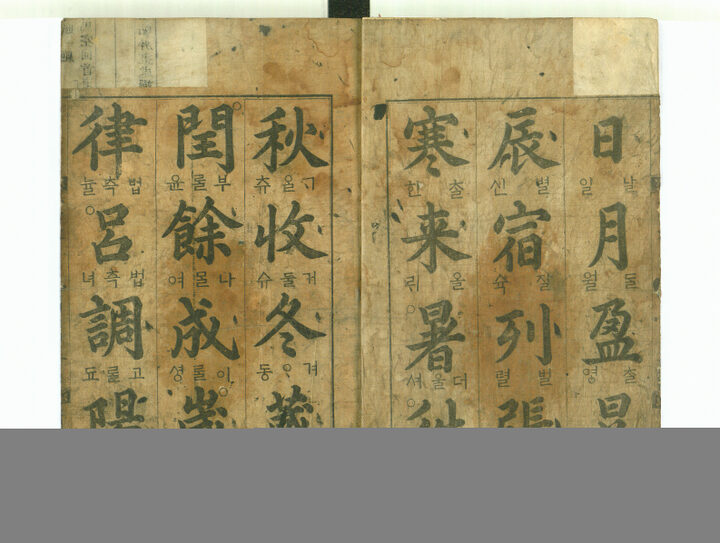 日 날 일 月 ᄃᆞᆯ 월 盈 ᄎᆞᆯ 영
辰 별 신 宿 잘 슉 列 벌 렬 張
寒 ᄎᆞᆯ 한 来 올 ᄅᆡ 暑 더울 셔
秋 ᄀᆞᄋᆞᆯ 츄 收 거둘 슈 冬 겨ᄋᆞ 동 藏
閏 부를 윤 餘 나ᄆᆞᆯ 여 成 이롤 셩 歲
律 법측 뉼 呂 법측 녀 調 고롤 됴 陽